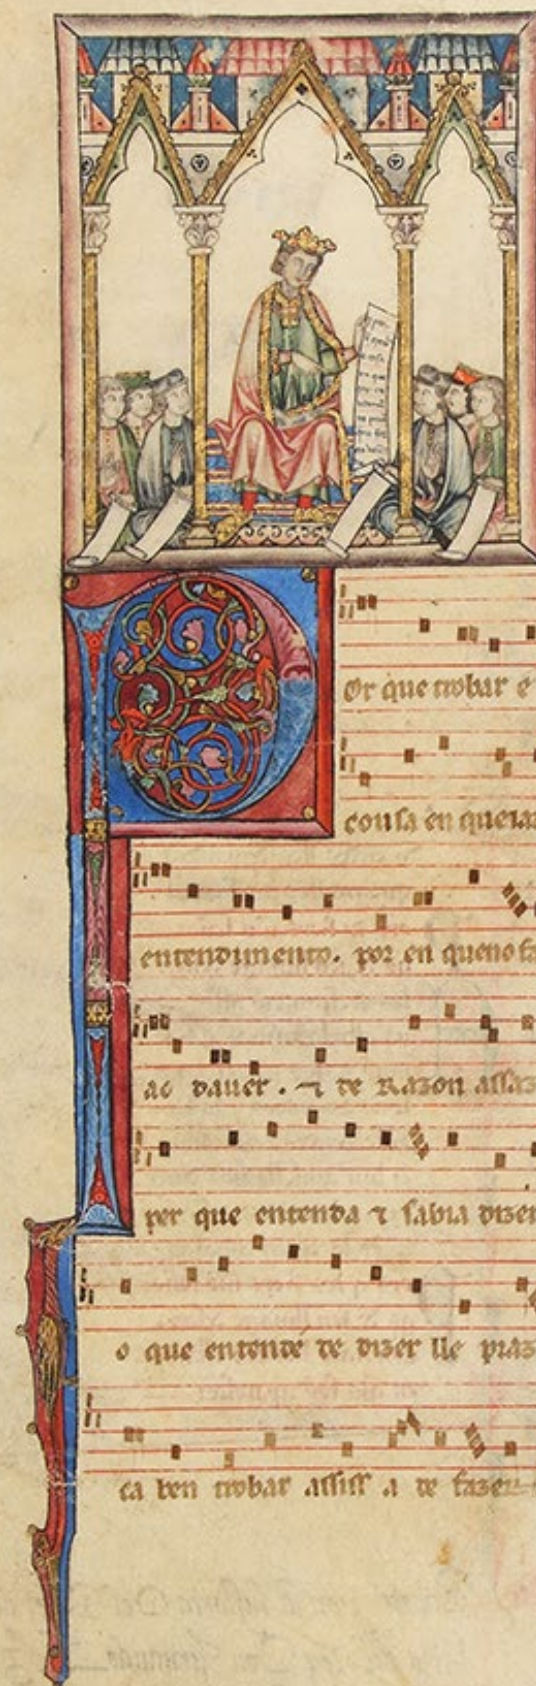 Por que trobar e
cousa en que iaz
entendimento. por en queno fa
ao dauer. ⁊ de Razon assaz
per que entenda ⁊ sabia dizer
o que entendé de dizer lle praz
ca ben trobar assiss a de fazer